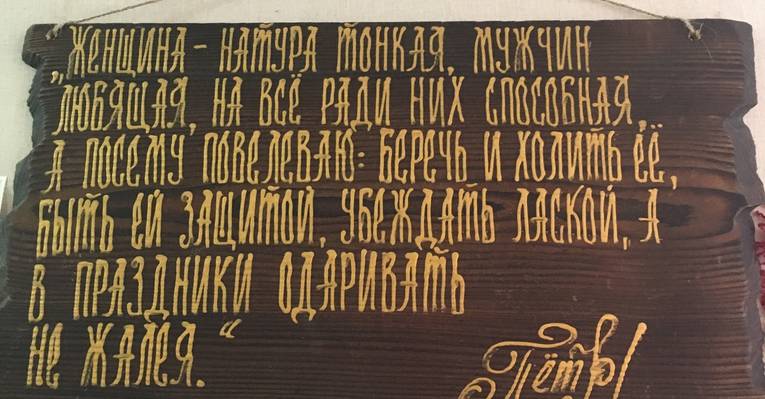 „Женщина - натура тонкая, мужчин
любящая, на всё ради них способная,
а посему повелеваю: беречь и холить её,
быть ей защитой, убеждать лаской, а
в праздники одаривать
не жалея.“
Пётр I